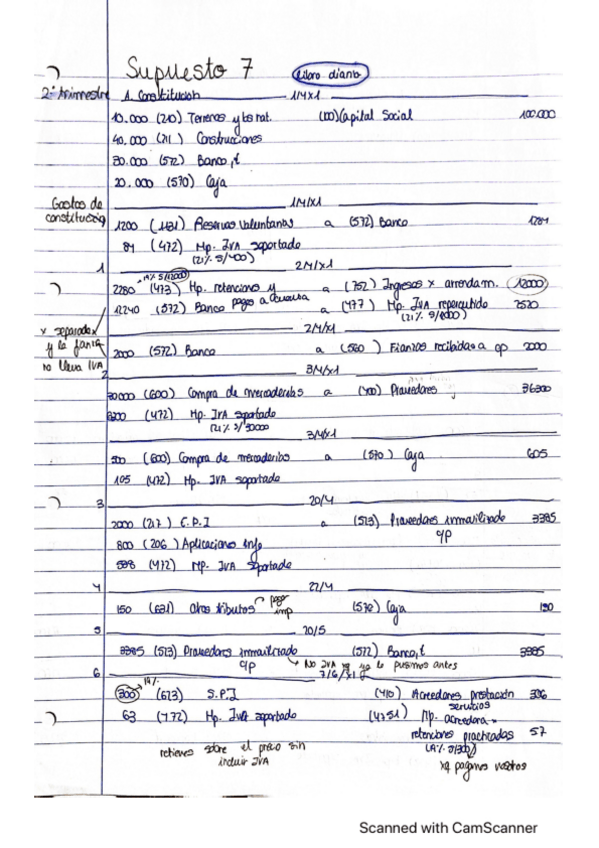 Supuesto 7 Libro diario
2º trimestre 1. Constitución 1/4/X1
10.000 (210) Terrenos y bs nat. (100) Capital Social 100.000
40.000 (211) Construcciones
30.000 (572) Banco,
20.000 (570) Caja
Gastos de 1/4/X1
constitución
1200 (1131) Reservas Voluntarias a (572) Banco 1284
84 (472) Hp. IVA soportado
(21% s/400)
1 2/4/X1
19% s/12000
2280 (473) Hp. retenciones y a (752) Ingresos x arrendam. 12000
12240 (572) Banco pagos a cuenta a (477) Hp. IVA repercutido 2520
(21% s/12000)
2/4/X1
x separado x
y la fianza
no lleva IVA
2000 (572) Banco a (560) Fianzas recibidas a cp 2000
2 3/4/X1
30000 (600) Compra de mercaderías a (400) Proveedores 36300
6300 (472) Hp. IVA soportado
(21% s/30000
3/4/X1
500 (600) Compra de mercaderías a (570) Caja 605
105 (472) Hp. IVA soportado
3 20/4
2000 (217) E.P.I a (523) Proveedores inmovilizado 3385
c/p
800 (206) Aplicaciones info
588 (472) Hp. IVA soportado
4 27/4
150 (631) Otros tributos pagar imp (570) Caja 150
5 20/5
3385 (523) Proveedores inmovilizado (572) Banco, 3385
c/p No IVA ya lo pusimos antes
6 7/6/X1
19%
300 (623) S.P.I (410) Acreedores prestación 306
servicios
63 (472) Hp. IVA soportado (4751) Hp. acreedora x
retenciones practicadas 57
(19% s/300)
retienes sobre el precio sin
incluir IVA
xq pagamos nosotros
Scanned with CamScanner